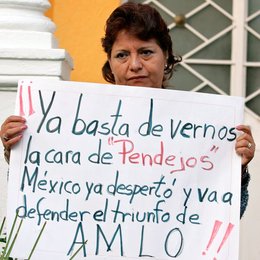 ¡¡Ya basta de vernos
la cara de "Pendejos"
México ya despertó y va a
defender el triunfo de
AMLO!!